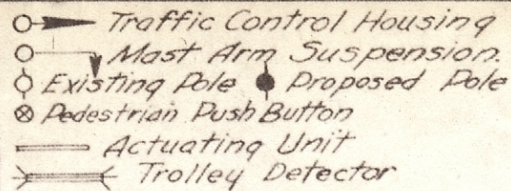 Traffic Control Housing
Mast Arm Suspension.
Existing Pole Proposed Pole
Pedestrian Push Button
Actuating Unit
Trolley Detector